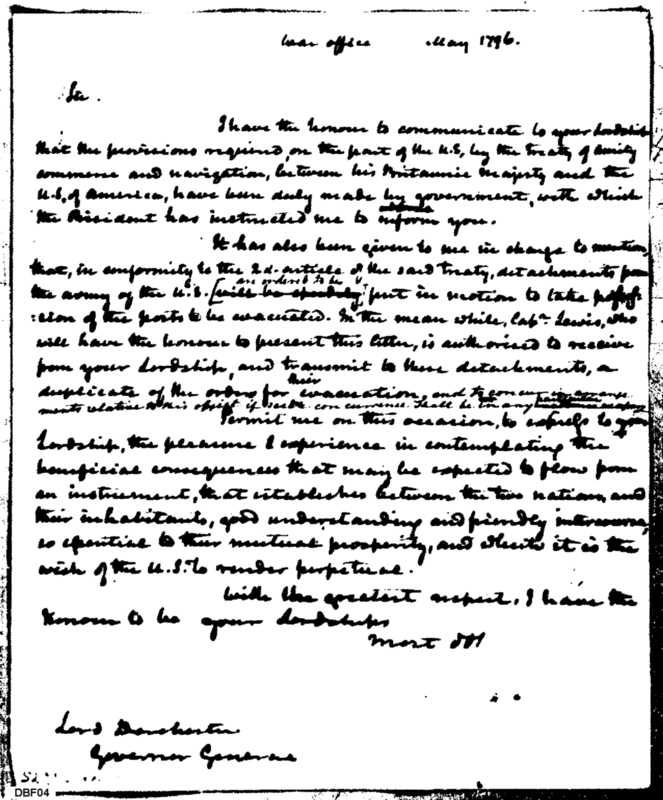 War office May 1796.
Sir.
I have the honour to communicate to your Lordship
that the provisions required, on the part of the U.S, by the treaty of amity
commerce and navigation, between his Britannic Majesty and the
U.S, of America, have been duly made by government, with which
the President has instructed me to inform you.
It has also been given to me in charge to mention,
that, in conformity to the 2d. article of the said treaty, detachments from
are ordered to be
the army of the U.S. [will be speedily] put in motion to take posses-
:sion of the posts to be evacuated. In the mean while, Capn. Lewis, who
will have the honour to present this letter, is authorised to receive
from your Lordship, and transmit to these detachments, a
their
duplicate of the orders for evacuation, and to concur in arrange
ments relative to this object if such concurrence shall be in any
Permit me on this occasion, to express to your
Lordship, the pleasure I experience in contemplating the
beneficial consequences that may be expected to flow from
an instrument, that establishes between the two nations, and
their inhabitants, good understanding and friendly intercourse,
so essential to their mutual prosperity, and which it is the
wish of the U.S. to render perpetual.
With the greatest respect, I have the
honour to be your Lordships
most obt
Lord Dorchester
Governor General
DBF04